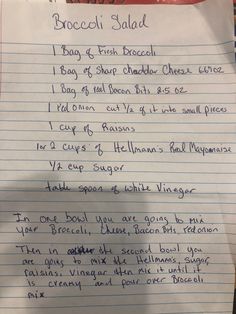 Broccoli Salad
1 Bag of Fresh Broccoli
1 Bag of Sharp Cheddar Cheese 667oz
1 Bag of real Bacon Bits 2.5 oz
1 red onion cut 1/2 of it into small pieces
1 cup of Raisins
1 or 2 cups of Hellmann's Real Mayonnaise
1/2 cup sugar
table spoon of white Vinegar
In one bowl you are going to mix
your Broccoli, Cheese, Bacon Bits, red onion
Then in the second bowl you
are going to mix the Hellmann's, sugar,
raisins, vinegar then mix it until it
is creamy and pour over Broccoli
mix